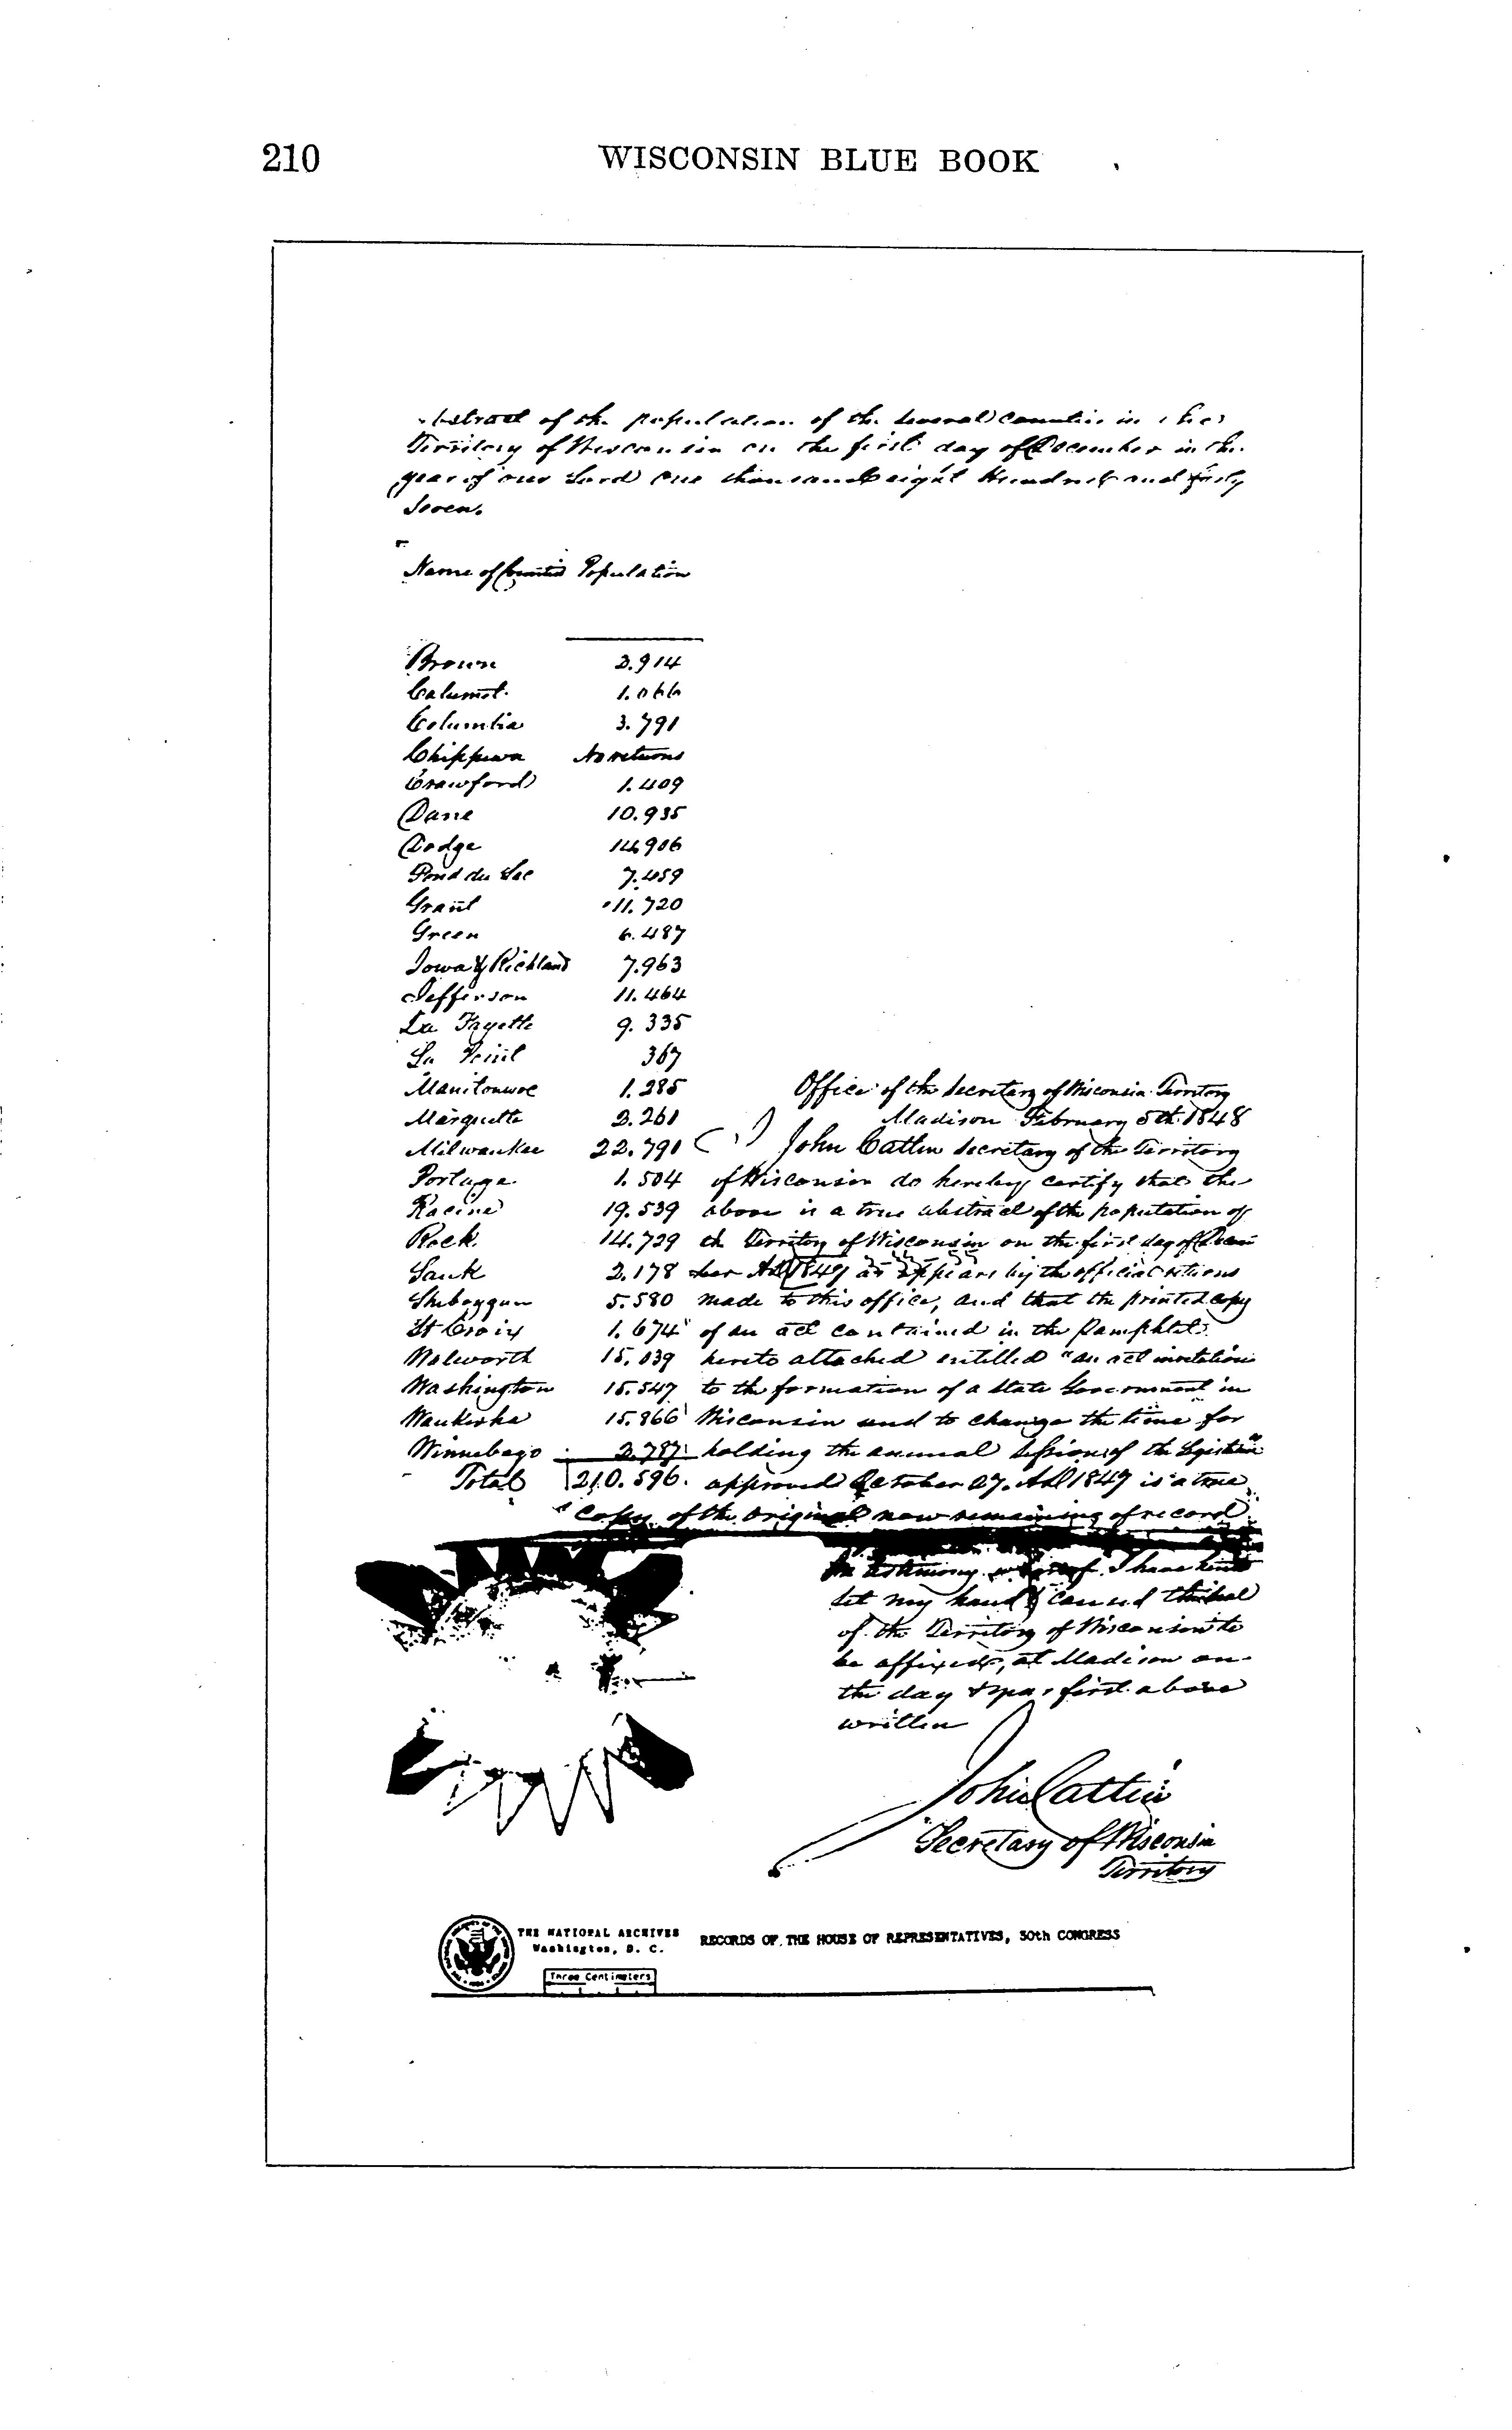 210 WISCONSIN BLUE BOOK
Abstract of the population of the several Counties in the
Territory of Wisconsin on the first day of December in the
year of our Lord One thousand eight Hundred and forty
Seven.
Name of Counties Population
Brown 2.914
Calumet. 1.066
Columbia 3.791
Chippewa No returns
Crawford 1.409
Dane 10.935
Dodge 14906
Fond du Lac 7.459
Grant 11.720
Green 6.487
Iowa & Richland 7.963
Jefferson 11.464
La Fayette 9.335
La Point 367
Manitouwoc 1.285
Marquette 2.261
Milwaukee 22.791
Portage 1.504
Racine 19.539
Rock. 14.729
Sauk 2.178
Sheboygan 5.580
St Croix 1.674
Walworth 15.039
Washington 15.547
Waukesha 15.866
Winnebago 2.787
Total 210.596.
Office of the Secretary of Wisconsin Territory
Madison February 5th. 1848
John Catlin Secretary of the Territory
of Wisconsin do hereby certify that the
above is a true abstract of the population of
the Territory of Wisconsin on the first day of Decem
ber AD 1847 as appears by the official returns
made to this office, and that the printed copy
of an act contained in the Pamphlet
hereto attached entitled "an act in relation
to the formation of a State Government in
Wisconsin and to change the time for
holding the annual Session of the Legislature
approved October 27. AD 1847 is a true
Copy of the original now remaining of record
In testimony whereof I have
set my hand & caused the seal
of the Territory of Wisconsin to
be affixed, at Madison on
the day & year first above
written
John Catlin
Secretary of Wisconsin
Territory
THE NATIONAL ARCHIVES
Washington, D. C.
RECORDS OF THE HOUSE OF REPRESENTATIVES, 30th CONGRESS
Three Centimeters